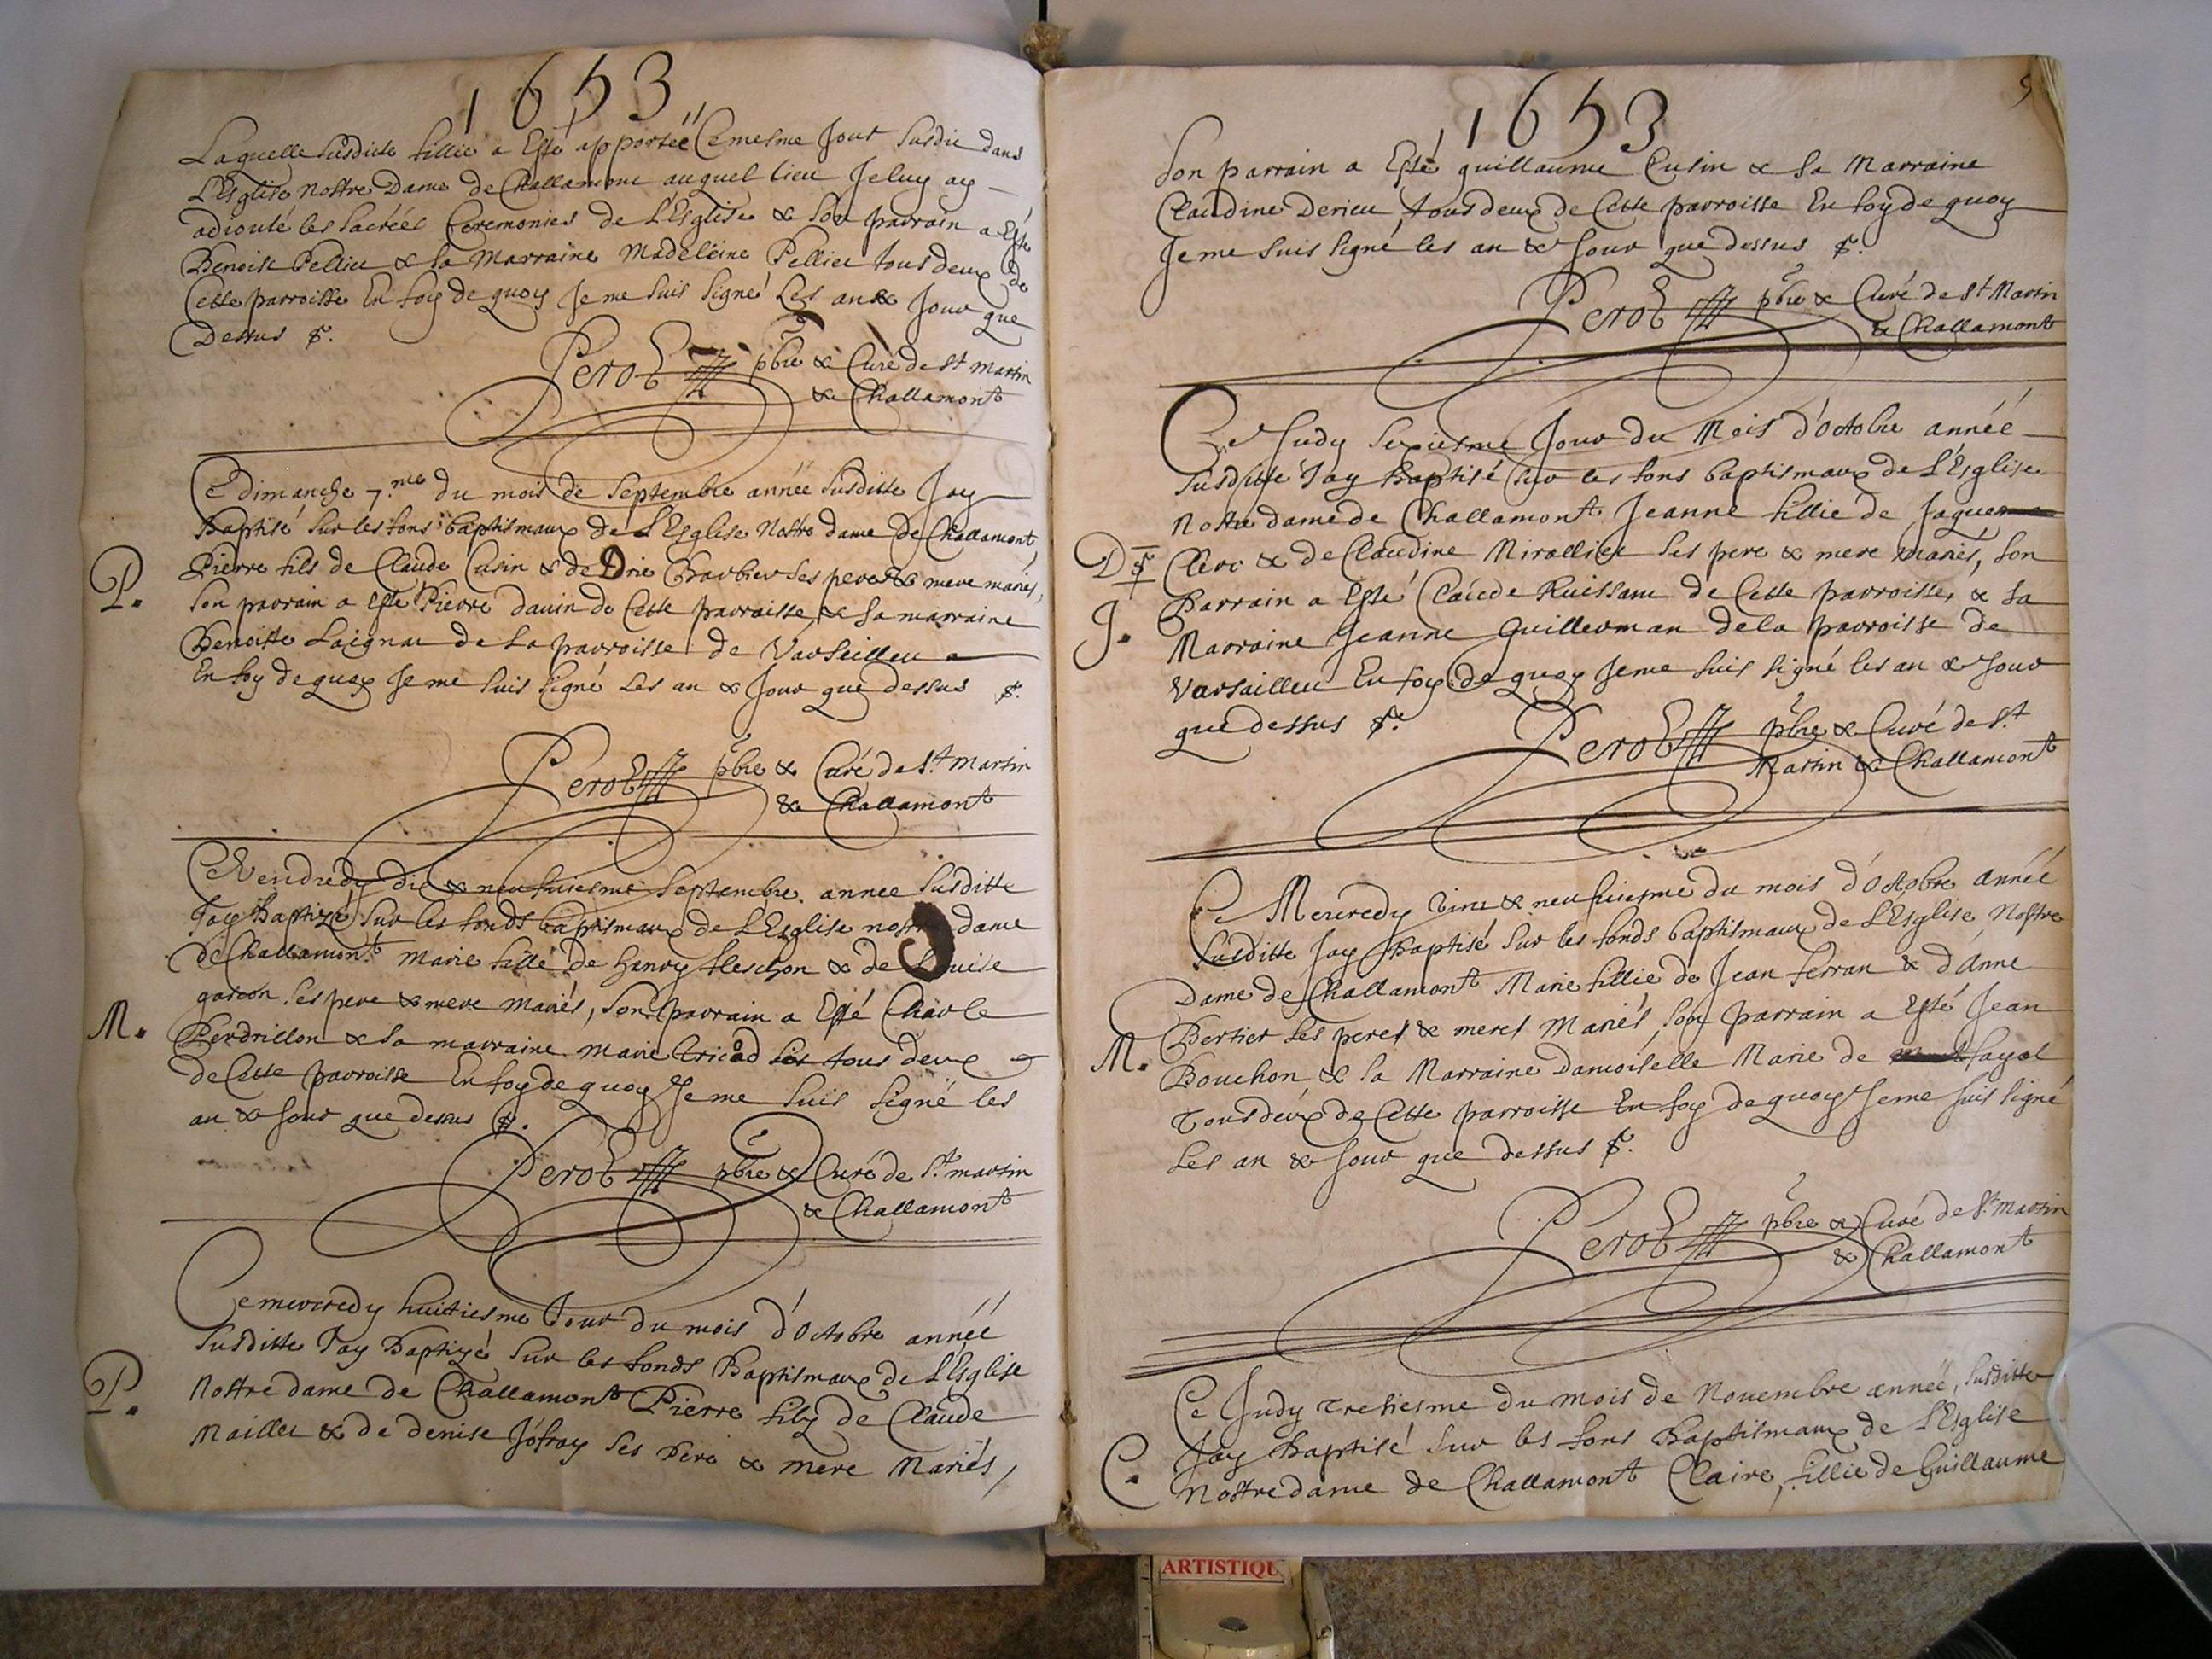 1653
Laquelle susditte fillie a Esté apportéé Ce mesme Jour susdit dans
L'Esglise nostre Dame de Challamont auquel lieu Je luy ay
adiouté les sacréés Ceremonies de L'Esglise & son parrain a Esté
Benoist Pellieu & sa Marraine Madeleine Pellieu tous deux de
Cette parroisse En foy de quoy Je me suis signé Les an & Jour que
Dessus
Perot pbre & Curé de St Martin
& Challamont
Ce dimanche 7.me du mois de septembre annéé susditte Jay
Baptisé sur les fons baptismaux de L'Esglise Nostre dame de Challamont
P.
Pierre fils de Claude Cusin & de Barbier ses peres & mere mariés,
son parrain a Esté Pierre dauin de Cette parroisse & sa marraine
Benoitte Laignau de La parroisse de Varseilleu
En foy de quoy Je me suis signé Les an & Jour que dessus
Perot pbre & Curé de St Martin
& Challamont
Ce Vendredy dix & neufuiesme septembre annee susditte
Jay Baptizé sur les fonds baptismaux de L'Esglise nostre dame
de Challamont marie fille de hanry fleschon & de Louise
garcon ses pere & mere mariés, Son parrain a Esté Charle
M.
Perdrillon & sa marraine marie tous deux
de Cette parroisse En foy de quoy Je me suis signé les
an & Jour que dessus
Perot pbre & Curé de St martin
& Challamont
Ce mercredy huittiesme Jour du mois d'octobre annéé
susditte Jay Baptizé sur les fonds Baptismaux de L'Esglise
P.
Nostre dame de Challamont Pierre filz de Claude
Maillet & de denise Jofray ses Pere & mere Mariés,
5
1653
Son parrain a Esté guillaume Cusin & sa Marraine
Claudine Derieu tous deux de Cette parroisse En foy de quoy
Je me suis signé les an & Jour que dessus
Perot pbre & Curé de St Martin
& Challamont
Ce Judy seziesme Jour du Mois d'octobre annéé
susditte Jay Baptisé sur les fons baptismaux de L'Esglise
Nostre dame de Challamont Jeanne fillie de Jaque
D
Clerc & de Claudine Mirallieu ses pere & mere mariés, son
J.
Parrain a Esté Claude Ruissau de Cette parroisse & sa
Marraine Jeanne Guillerman de la parroisse de
Varsailleu En foy de quoy Je me suis signé les an & Jour
que dessus
Perot pbre & Curé de St
Martin & Challamont
Ce Mercredy vint & neufuiesme du mois d'octobre annéé
susditte Jay Baptisé sur les fonds baptismaux de L'Esglise Nostre
Dame de Challamont Marie fillie de Jean ferran & d'Anne
M.
Bertier ses peres & meres Mariés son parrain a Esté Jean
Bouchon & sa Marraine Damoiselle Marie de fayol
Tous deux de Cette parroisse En foy de quoy Je me suis signé
Les an & Jour que dessus
Perot pbre & Curé de St Martin
& Challamont
Ce Judy treziesme du mois de Nouembre annéé, susditte
Jay Baptisé sur les fons Baptismaux de L'Esglise
C.
Nostre dame de Challamont Claire, fillie de Guillaume
ARTISTIQU